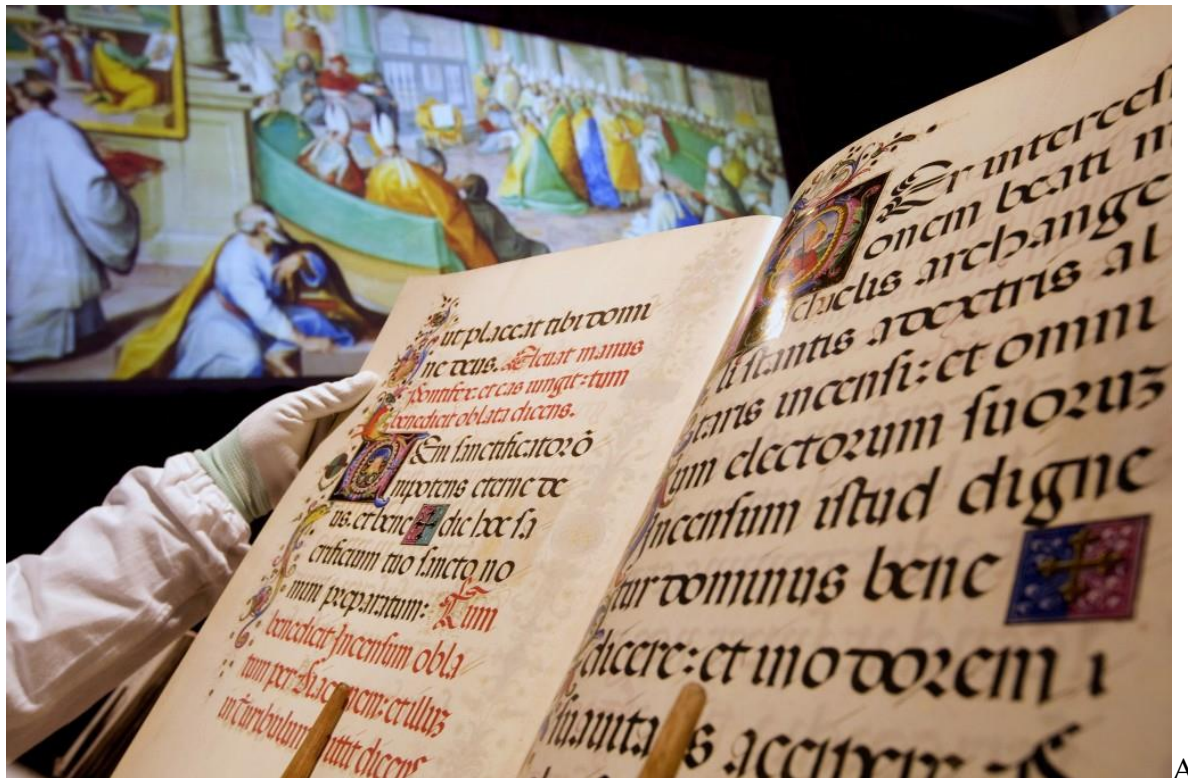 ut placeat tibi domi
ne deus. Eleuat manus
Pontifex: et eas iungit: tum
benedicit oblata dicens.
UEni sanctificator ō
nipotens eterne de
us. et bene ✠ dic hoc sa
crificium tuo sancto no
mini preparatum: Tum
benedicit Incensum obla
tum per Diaconem: et illuz
in turibulum mittit dicens
PEr intercessi
onem beati m
chaelis archange
li stantis adextris al
taris incensi: et omni
um electorum suoruz
incensum istud digne
tur dominus bene ✠
dicere: et in odorem
accipere:
A